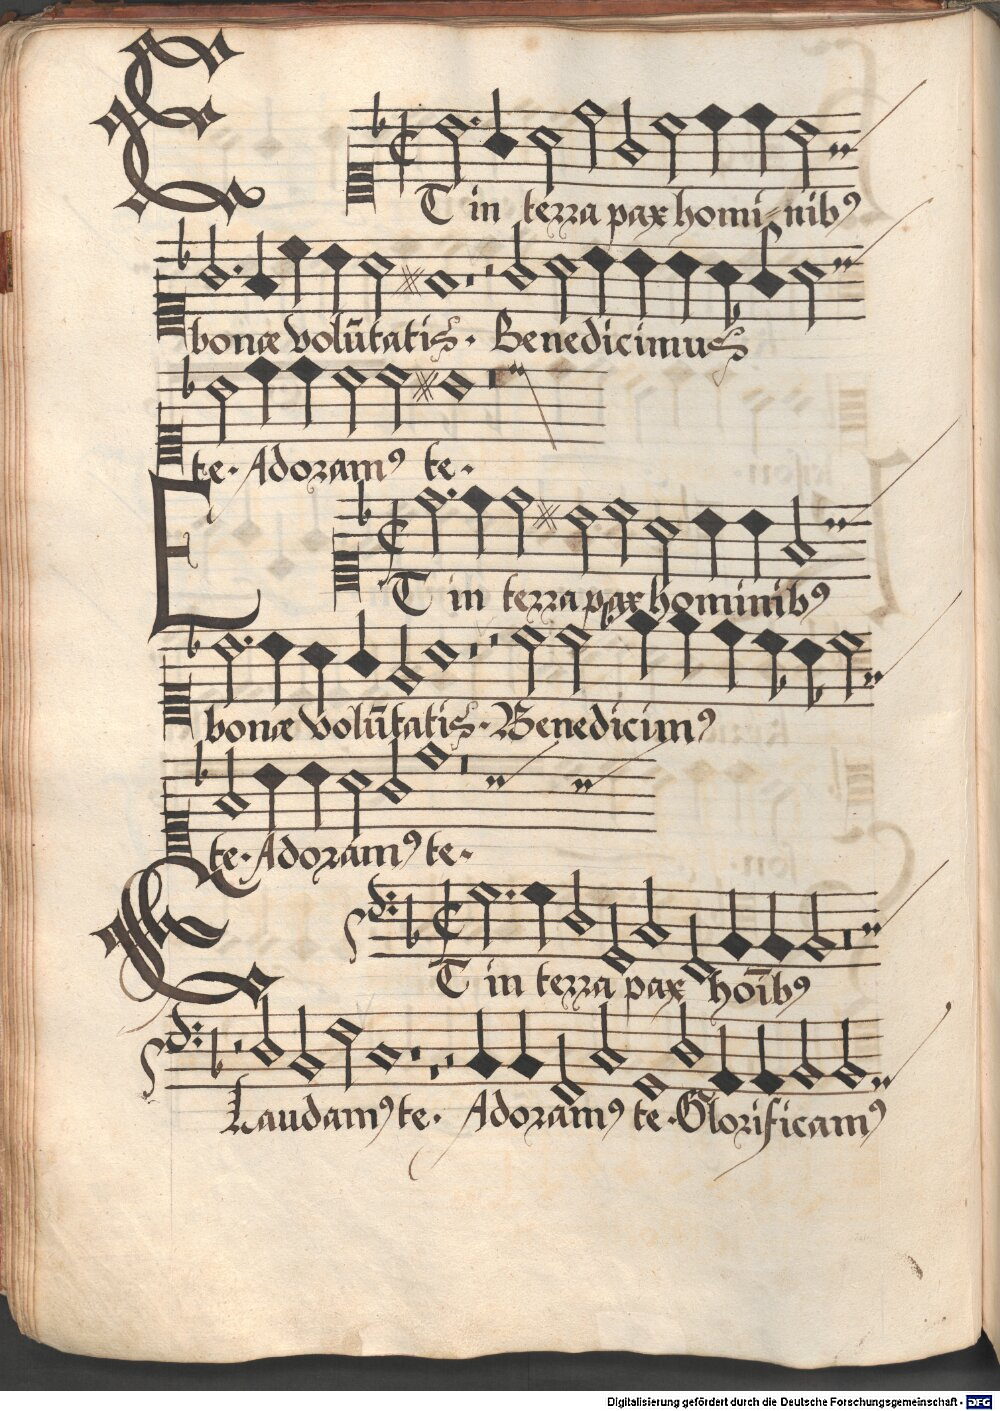 ET in terra pax hominibꝰ
bonæ volūtatis. Benedicimus
te. Adoramꝰ te.
ET in terra pax hominibꝰ
bonæ volūtatis. Benedicimꝰ
te. Adoramꝰ te.
ET in terra pax hōibꝰ
Laudamꝰ te. Adoramꝰ te. Glorificamꝰ
Digitalisierung gefördert durch die Deutsche Forschungsgemeinschaft - DFG